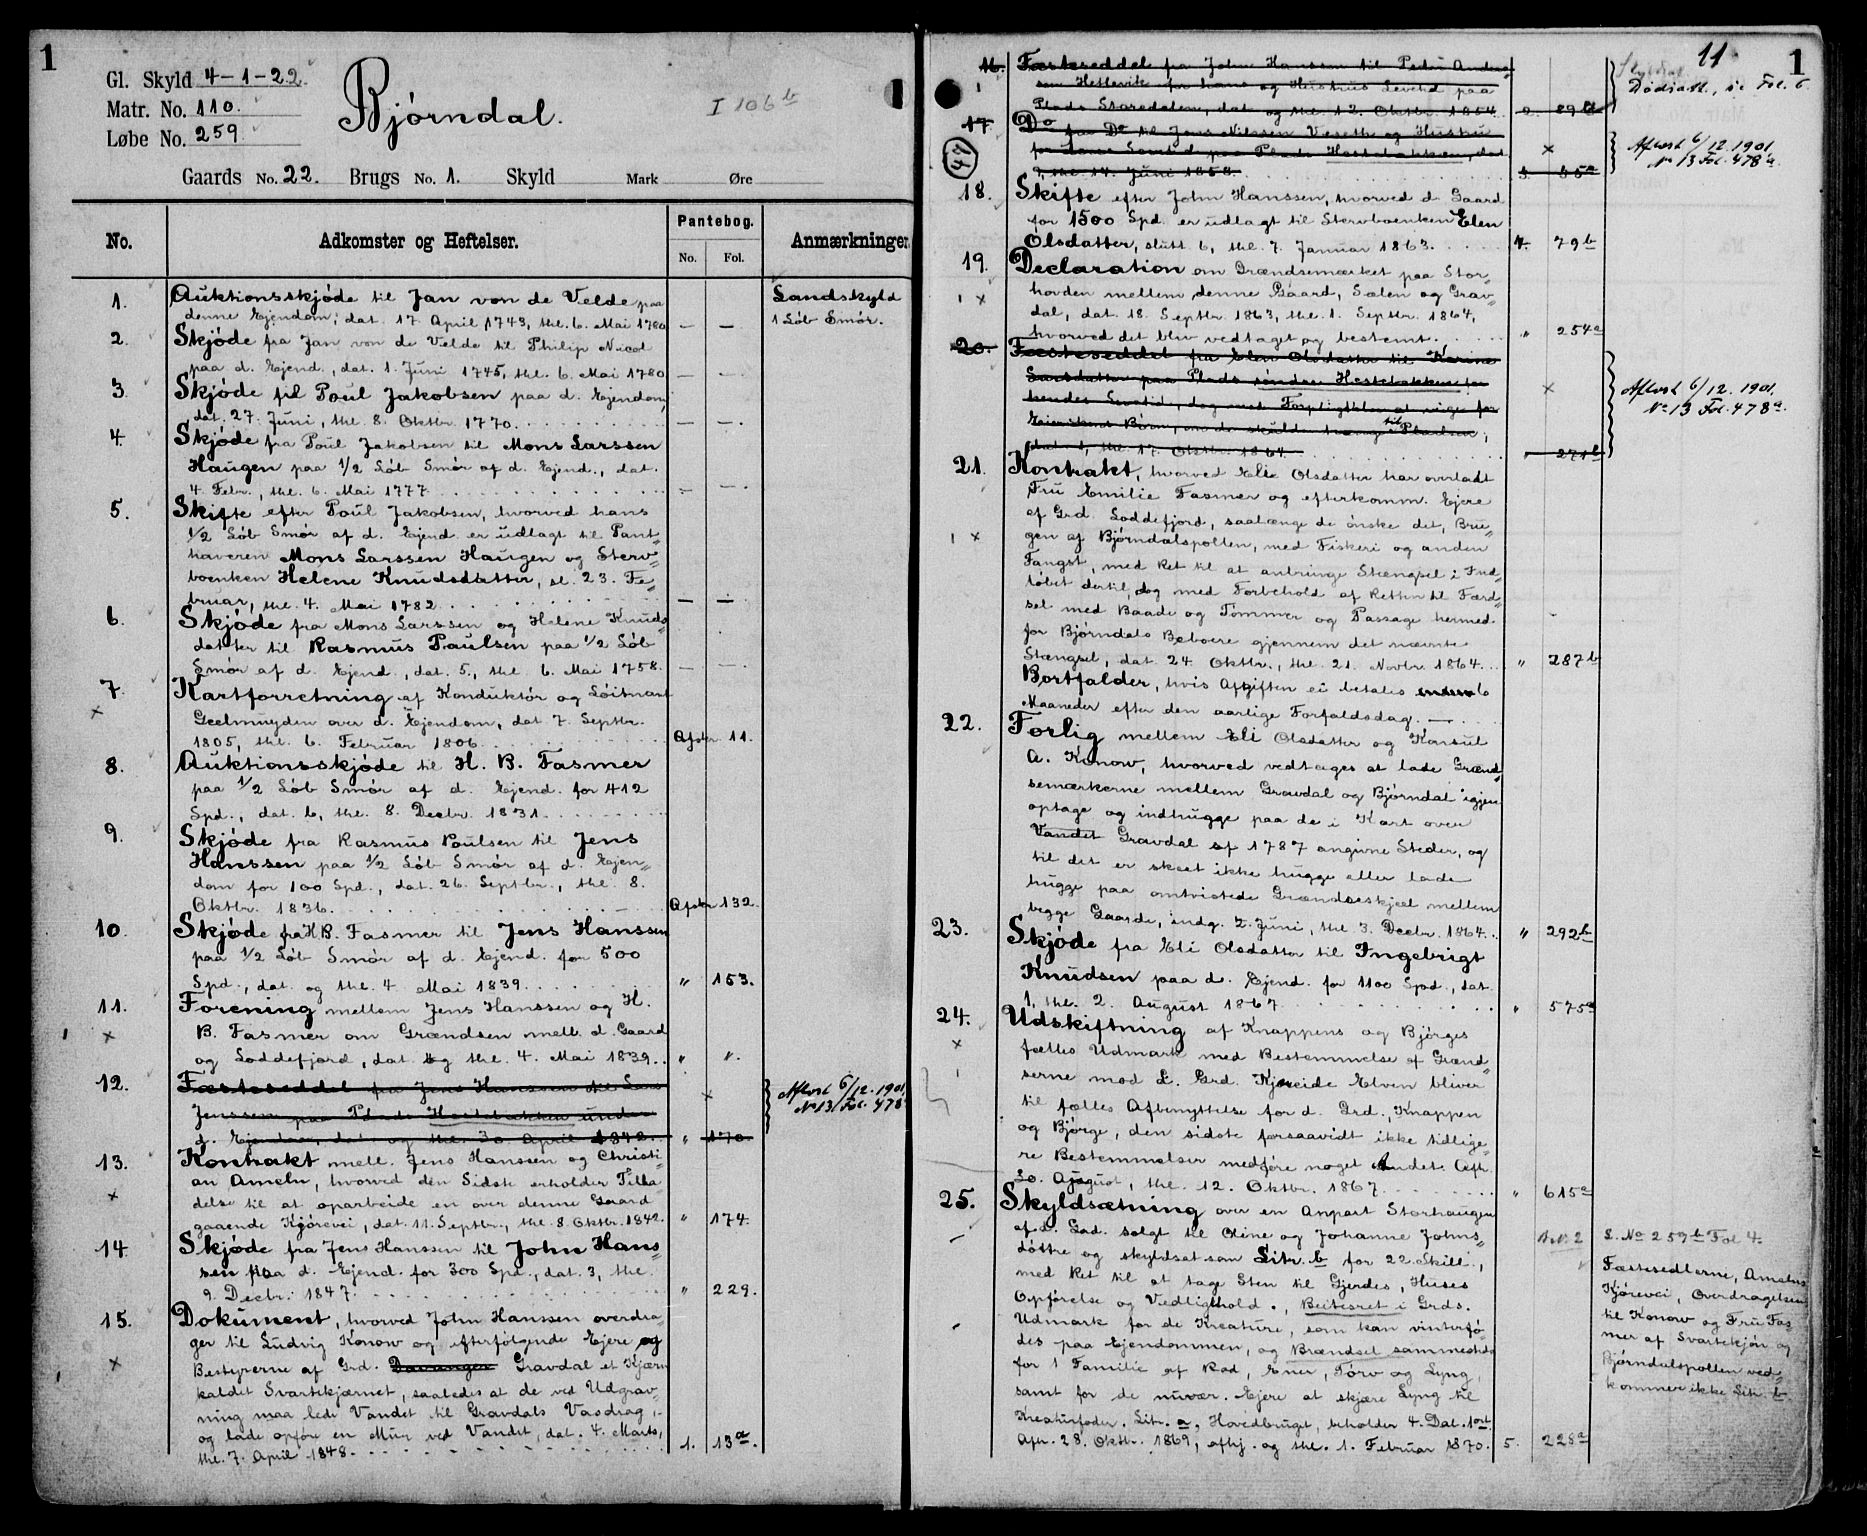 1
Gl. Skyld 4-1-22.
Matr. No. 110.
Løbe No. 259.
Bjørndal.
I 106 b
Gaards No. 22. Brugs No. 1. Skyld Mark Øre
No. Adkomster og Heftelser. Pantebog. Anmærkninger.
No. Fol.
1. Auktionsskjøde til Jan von de Velde paa Landskyld
denne Ejendom, dat. 17 April 1743, thl. 6. Mai 1780 — — 1 Løb Smør.
2. Skjøde fra Jan von de Velde til Philip Nicol
paa d. Ejend., dat. 1. Juni 1745, thl. 6. Mai 1780 — —
3. Skjøde til Poul Jakobsen paa d. Ejendom,
dat. 27. Juni, thl. 8. Oktbr. 1770. — —
4. Skjøde fra Poul Jakobsen til Mons Larssen
Haugen paa 1/2 Løb Smør af d. Ejend., dat.
4. Febr., thl. 6. Mai 1777 — —
5. Skifte efter Poul Jakobsen, hvorved hans
1/2 Løb Smør af d. Ejend. er udlagt til Pant=
haveren Mons Larssen Haugen og Sterv=
boenken Helene Knudsdatter, sl. 23. Fe=
bruar, thl. 4. Mai 1782 — —
6. Skjøde fra Mons Larssen og Helene Knuds=
datter til Rasmus Paulsen paa 1/2 Løb
Smør af d. Ejend., dat. 5., thl. 6. Mai 1758. — —
7. Kartforretning af Konduktør og Løitnant
× Geelmuyden over d. Ejendom, dat. 7. Septbr.
1805, thl. 6. Februar 1806. Afskr. 11.
8. Auktionsskjøde til H. B. Fasmer
paa 1/2 Løb Smør af d. Ejend. for 412
Spd., dat. 6, thl. 8. Decbr. 1831.
9. Skjøde fra Rasmus Poulsen til Jens
Hanssen paa 1/2 Løb Smør af d. Ejen=
dom for 100 Spd., dat. 26. Septbr., thl. 8.
Oktbr. 1836. Afskr. 132.
10. Skjøde fra H B. Fasmer til Jens Hanssen
paa 1/2 Løb Smør af d. Ejend. for 500
Spd., dat. og thl. 4 Mai 1839. " 153.
11. Forening mellem Jens Hanssen og H.
× B. Fasmer om Grændsen mell. d. Gaard
og Loddefjord, dat. og thl. 4. Mai 1839. " ".
12. Fæsteseddel fra Jens Hanssen til Lars
Jenssen paa Plads Hestebakken under × Aflyst 6/12.1901
d. Ejendom, dat. og thl. 30. April 1842. " 170. No 13 Fol. 478a
13. Kontrakt mell. Jens Hanssen og Christi=
an Ameln, hvorved den Sidste erholder Tilla=
× delse til at oparbeide en over denne Gaard
gaaende Kjørevei, dat. 11. Septbr., thl. 8. Oktbr. 1842. " 174.
14. Skjøde fra Jens Hanssen til John Hans=
sen paa d. Ejend. for 300 Spd., dat. 3, thl.
9. Decbr. 1847. " 229.
15. Dokument, hvorved John Hanssen overdra=
ger til Ludvig Konow og efterfølgende Ejere og
× Bestyrerne af Grd. Gravdal et Kjærn
kaldet Svartekjærnet, saaledes at de ved Udgrav=
ning maa lede Vandet til Gravdals Vasdrag,
og lade opføre en Mur ved Vandet, dat. 4. Marts,
thl. 7. April 1848. 1. 13a.
11 1
16. Fæsteseddel fra John Hanssen til Peder Andrea=
sen Hettevik for hans og Hustrus Levetid paa Dødsatt., se Fol. 6.
Plads Storedalen, dat. og thl. 12. Oktbr. 1854. 2. 89a
17. Do fra Do til Jens Nilssen Veseth og Hustru
47 for Deres Levetid paa Plads Hestebakken, dat. × Aflyst 6/12.1901
9, thl. 14. Juni 1858. 3. 55a No 13 Fol. 478a.
18. Skifte efter John Hanssen, hvorved d. Gaard
for 1500 Spd. er udlagt til Stervboenken Elen
Olsdatter, slutt. 6, thl. 7. Januar 1863. 4. 79b
19. Declaration om Grændsemærket paa Stor=
× hovden mellem denne Gaard, Sælen og Grav=
dal, dat. 18. Septbr. 1863, thl. 1. Septbr. 1864,
hvorved det blev vedtaget og bestemt. " 254a
20. Fæsteseddel fra Elen Olsdatter til Karine
Larsdatter paa Plads søndre Hestebakken for × Aflyst 6/12.1901,
hendes Livstid, dog med Forpligtelse at vige for No 13 Fol. 478a.
Eierskens Børn, om de skulde trænge til Pladsen,
dat. 1, thl. 17. Oktbr. 1864. " 271b
21. Kontrakt, hvorved Eli Olsdatter har overladt
Fru Emilie Fasmer og efterkomm. Ejere
af Grd. Loddefjord, saalænge de ønske det, Bru=
× gen af Bjørndalspollen, med Fiskeri og anden
Fangst, med Ret til at anbringe Stængsel i Ind=
løbet dertil, dog med Forbehold af Retten til Færd=
sel med Baade og Tømmer og Passage hermed
for Bjørndals Beboere gjennem det nævnte
Stængsel, dat. 24. Oktbr., thl. 21. Novbr. 1864. " 287b
Bortfalder, hvis Afgiften ei betales inden 6
Maaneder efter den aarlige Forfaldsdag. —
22. Forlig mellem Eli Olsdatter og Konsul
A. Konow, hvorved vedtages at lade Grænd=
semærkerne mellem Gravdal og Bjørndal igjen
optage og indhugge paa de i Kart over
Vandet Gravdal af 1787 angivne Steder, og
til det er skeet ikke hugge eller lade
hugge paa omtvistede Grændseskjæl mellem
begge Gaarde, indg. 2. Juni, thl. 3. Decbr. 1864. " 292b
23. Skjøde fra Eli Olsdatter til Ingebrigt
Knudsen paa d. Ejend. for 1100 Spd., dat.
1, thl. 2. August 1867 " 575a
24. Udskiftning af Knappens og Bjørges
× fælles Udmark med Bestemmelse af Grænd=
serne mod L. Grd. Kjøreide Elven bliver
til fælles Afbenyttelse for d. Grd., Knappen
og Bjørge, den sidste forsaavidt ikke tidlige=
re Bestemmelser medføre noget Andet. Afh.
20. August, thl. 12. Oktbr. 1867. " 615a
25. Skyldsætning over en Anpart Storhaugen
af d. Gad. solgt til Oline og Johanne Johns= B.No. 2 L. No 259 b Fol 4.
døttre og skyldsat som Litr. b for 22 Skill.,
med Ret til at tage Sten til Gjerdes, Huses Fæstesedlerne, Amelns
Opførelse og Vedligehold., Beitesret i Grds. Kjørevei, Overdragelsen
Udmark for de Kreature, som kan vinterfø= til Konow og Fru Fas=
des paa Ejendommen, og Brændsel sammesteds mer af Svartekjøn og
for 1 Familie af Rad, Ener, Tørv og Lyng, Bjørndalspollen ved=
samt for de nuvær. Ejere at skjære Lyng til kommer ikke Litr. b.
Kreaturfoder. Litr. a, Hovedbruget, beholder 4. Dal. 1 ort.
Afh. 28. Oktbr. 1869, afhj. og thl. 1. Februar 1870. 5. 228a